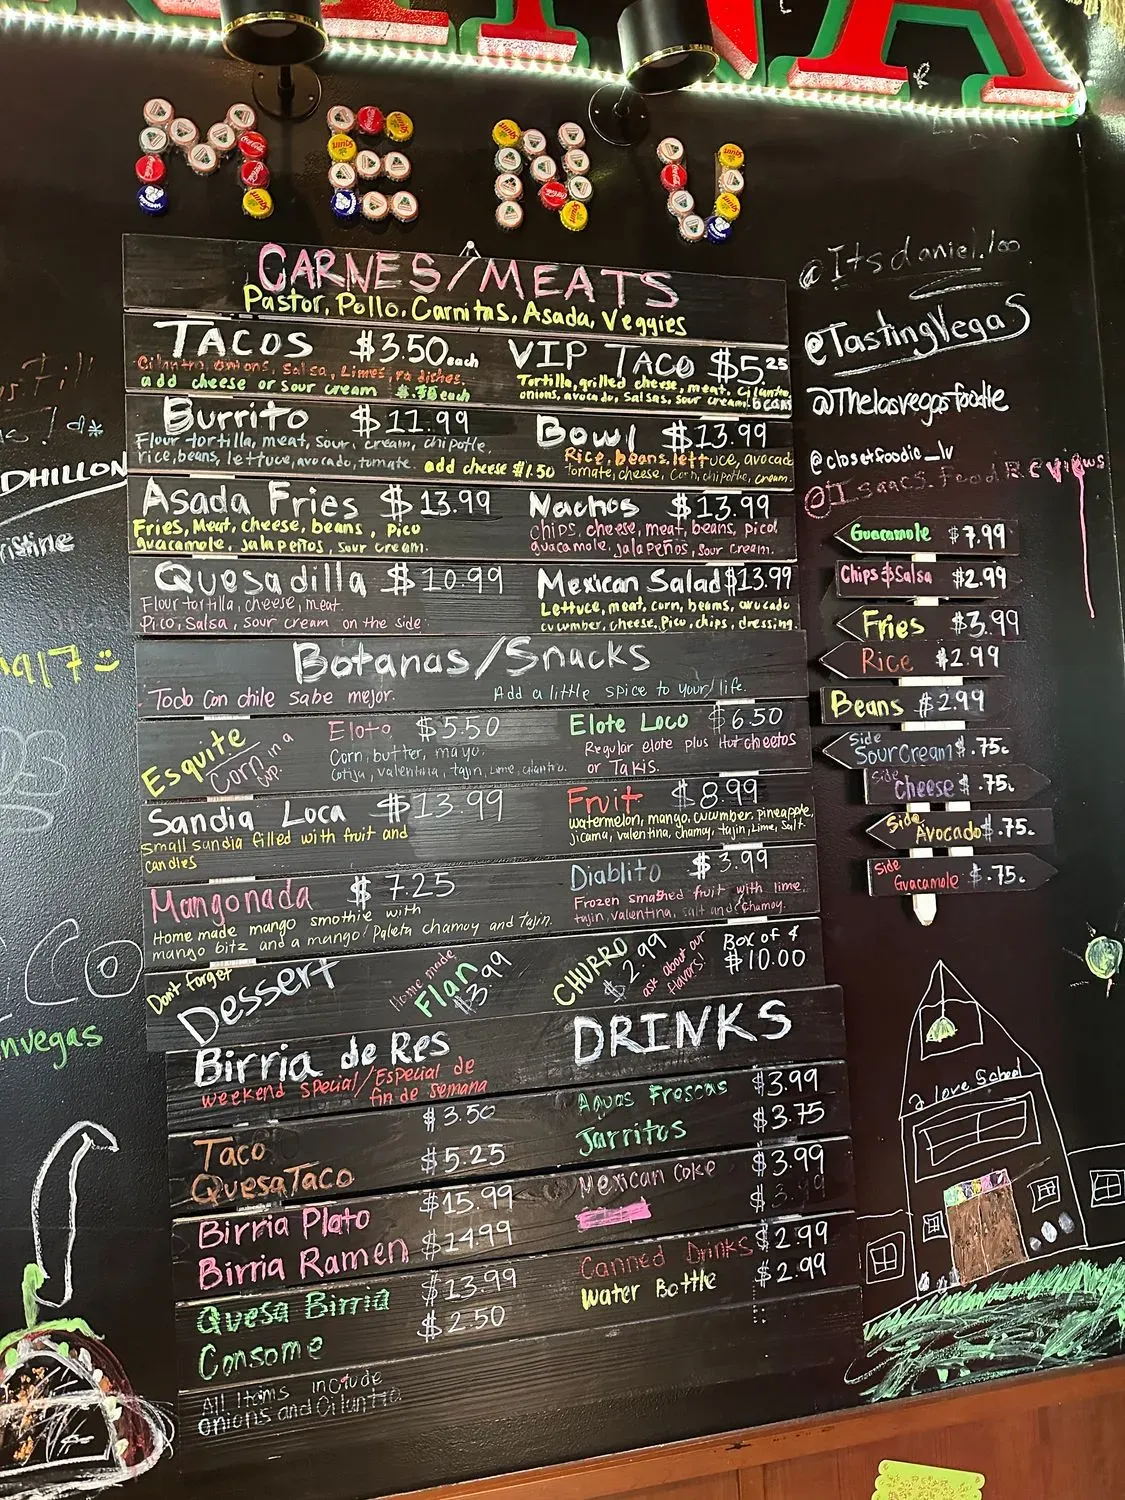 MENU
CARNES/MEATS
Pastor, Pollo, Carnitas, Asada, Veggies
TACOS $3.50 each
Cilantro, onions, salsa, Limes, radishes.
add cheese or sour cream each
VIP TACO $5.25
Tortilla, grilled cheese, meat, cilantro,
onions, avocado, salsas, sour cream, beans
Burrito $11.99
Flour tortilla, meat, sour cream, chipotle,
rice, beans, lettuce, avocado, tomate. add cheese $1.50
Bowl $13.99
Rice, beans, lettuce, avocad
tomate, cheese, Corn, chipotle, cream
Asada Fries $13.99
Fries, Meat, cheese, beans, Pico
guacamole, jalapeños, sour cream.
Nachos $13.99
Chips, cheese, meat, beans, pico,
guacamole, jalapeños, sour cream.
Quesadilla $10.99
Flour tortilla, cheese, meat.
Pico, Salsa, sour cream on the side.
Mexican Salad $13.99
Lettuce, meat, corn, beans, avocado
cucumber, cheese, Pico, chips, dressing.
Botanas/Snacks
Todo Con chile sabe mejor.
Add a little spice to your life.
Esquite
Corn in a
cup.
Elote $5.50
Corn, butter, mayo,
Cotija, valentina, tajin, Lime, cilantro.
Elote Loco $6.50
Regular elote plus Hot cheetos
or Takis.
Sandia Loca $13.99
Small sandia filled with fruit and
candies
Fruit $8.99
watermelon, mango, cucumber, pineapple,
jicama, valentina, chamoy, tajin, Lime, Salt
Mangonada $7.25
Home made mango smothie with
mango bitz and a mango Paleta chamoy and tajin.
Diablito $3.99
Frozen smashed fruit with lime,
tajin, valentina, salt and chamoy.
Don't forget
Dessert
Home made
Flan
$3.99
CHURRO
$2.99
ask about our
flavors!
Box of 4
$10.00
Birria de Res
weekend special/Especial de
fin de semana
Taco $3.50
QuesaTaco $5.25
Birria Plato $15.99
Birria Ramen $14.99
Quesa Birria $13.99
Consome $2.50
All Items include
onions and Cilantro.
DRINKS
Aguas Frescas $3.99
Jarritos $3.75
Mexican Coke $3.99
$3.99
Canned Drinks $2.99
Water Bottle $2.99
@Itsdaniel.loo
@TastingVegas
@Thelasvegasfoodie
@closetfoodie_lv
@Isaacs.Food.Reviews
Guacamole $7.99
Chips & Salsa $2.99
Fries $3.99
Rice $2.99
Beans $2.99
Side Sour Cream $.75c
Side Cheese $.75c
Side Avocado $.75c
Side Guacamole $.75c
I love School
DHILLON